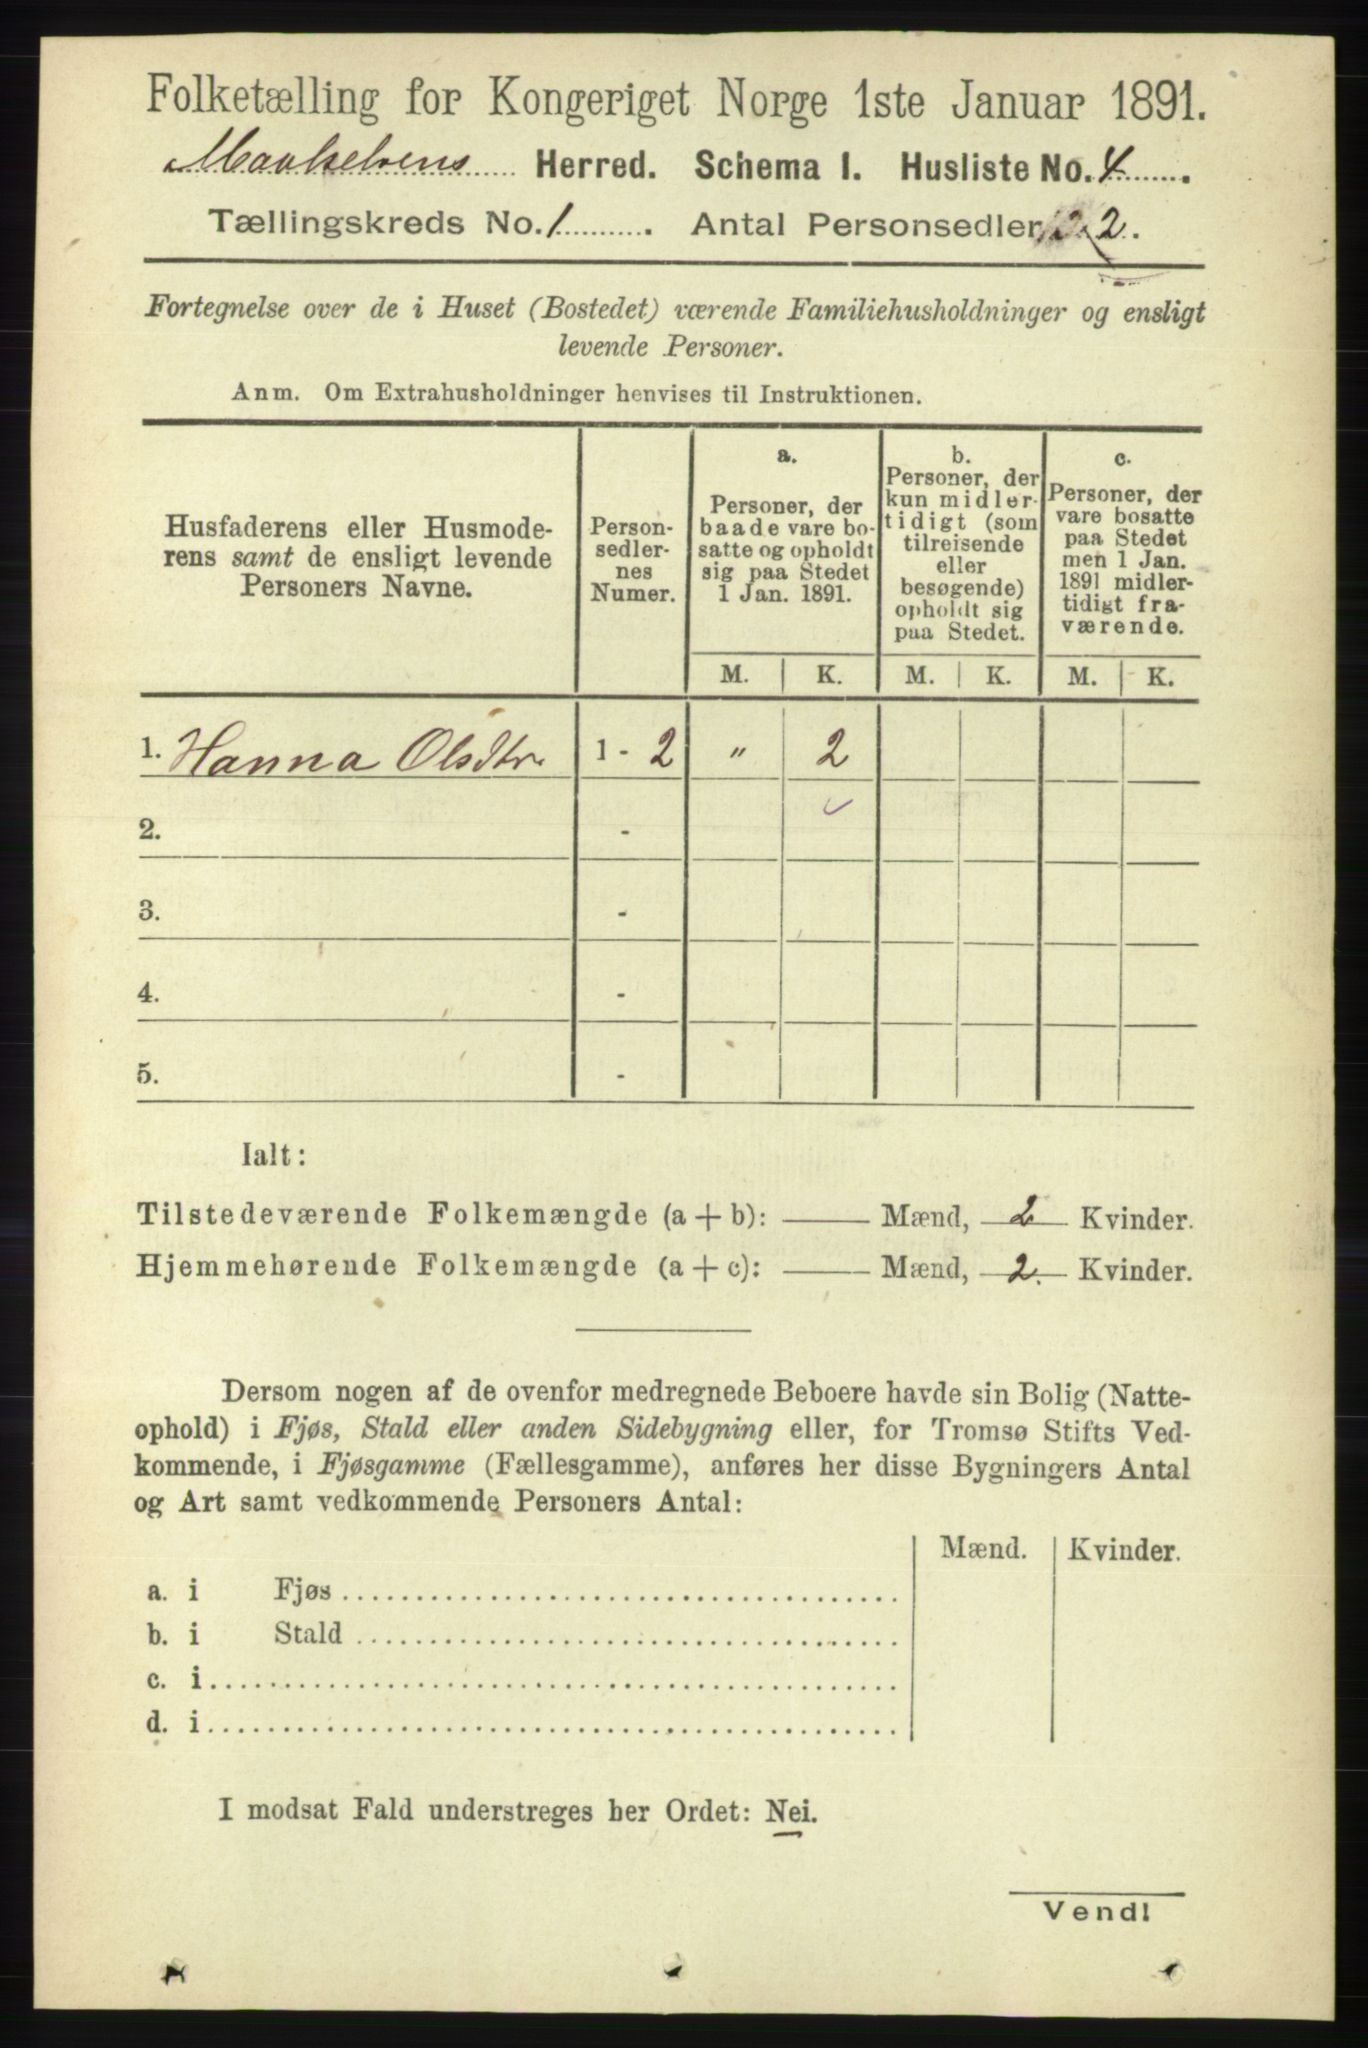 Folketælling for Kongeriget Norge 1ste Januar 1891.
Maalselvens Herred. Schema I. Husliste No. 4.
Tællingskreds No. 1. Antal Personsedler 2.
Fortegnelse over de i Huset (Bostedet) værende Familiehusholdninger og ensligt
levende Personer.
Anm. Om Extrahusholdninger henvises til Instruktionen.
Husfaderens eller Husmode-
rens samt de ensligt levende
Personers Navne.
Person-
sedler-
nes
Numer.
a.
Personer, der
baade vare bo-
satte og opholdt
sig paa Stedet
1 Jan. 1891.
b.
Personer, der
kun midler-
tidigt (som
tilreisende
eller
besøgende)
opholdt sig
paa Stedet.
c.
Personer, der
vare bosatte
paa Stedet
men 1 Jan.
1891 midler-
tidigt fra-
værende.
M. K. M. K. M. K.
1. Hanna Olsdtr. 1 - 2 " 2
2. -
3. -
4. -
5. -
Ialt:
Tilstedeværende Folkemængde (a + b): —— Mænd, 2 Kvinder.
Hjemmehørende Folkemængde (a + c): —— Mænd, 2. Kvinder.
Dersom nogen af de ovenfor medregnede Beboere havde sin Bolig (Natte-
ophold) i Fjøs, Stald eller anden Sidebygning eller, for Tromsø Stifts Ved-
kommende, i Fjøsgamme (Fællesgamme), anføres her disse Bygningers Antal
og Art samt vedkommende Personers Antal:
Mænd. Kvinder.
a. i Fjøs
b. i Stald
c. i
d. i
I modsat Fald understreges her Ordet: Nei.
Vend!